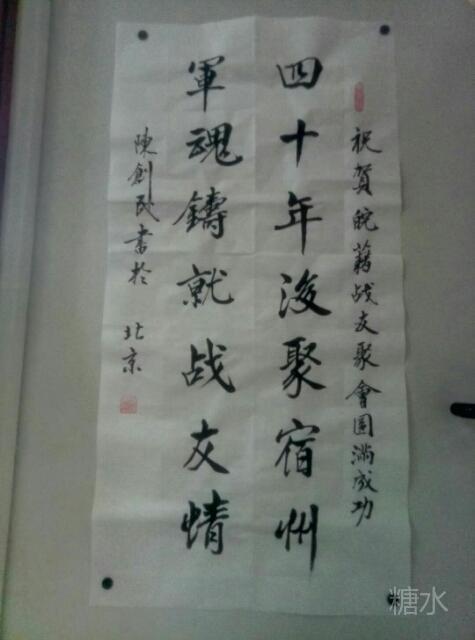 祝賀皖藉战友聚會圆滿成功
四十年後聚宿州
軍魂鑄就战友情
陳創民書於北京
糖水